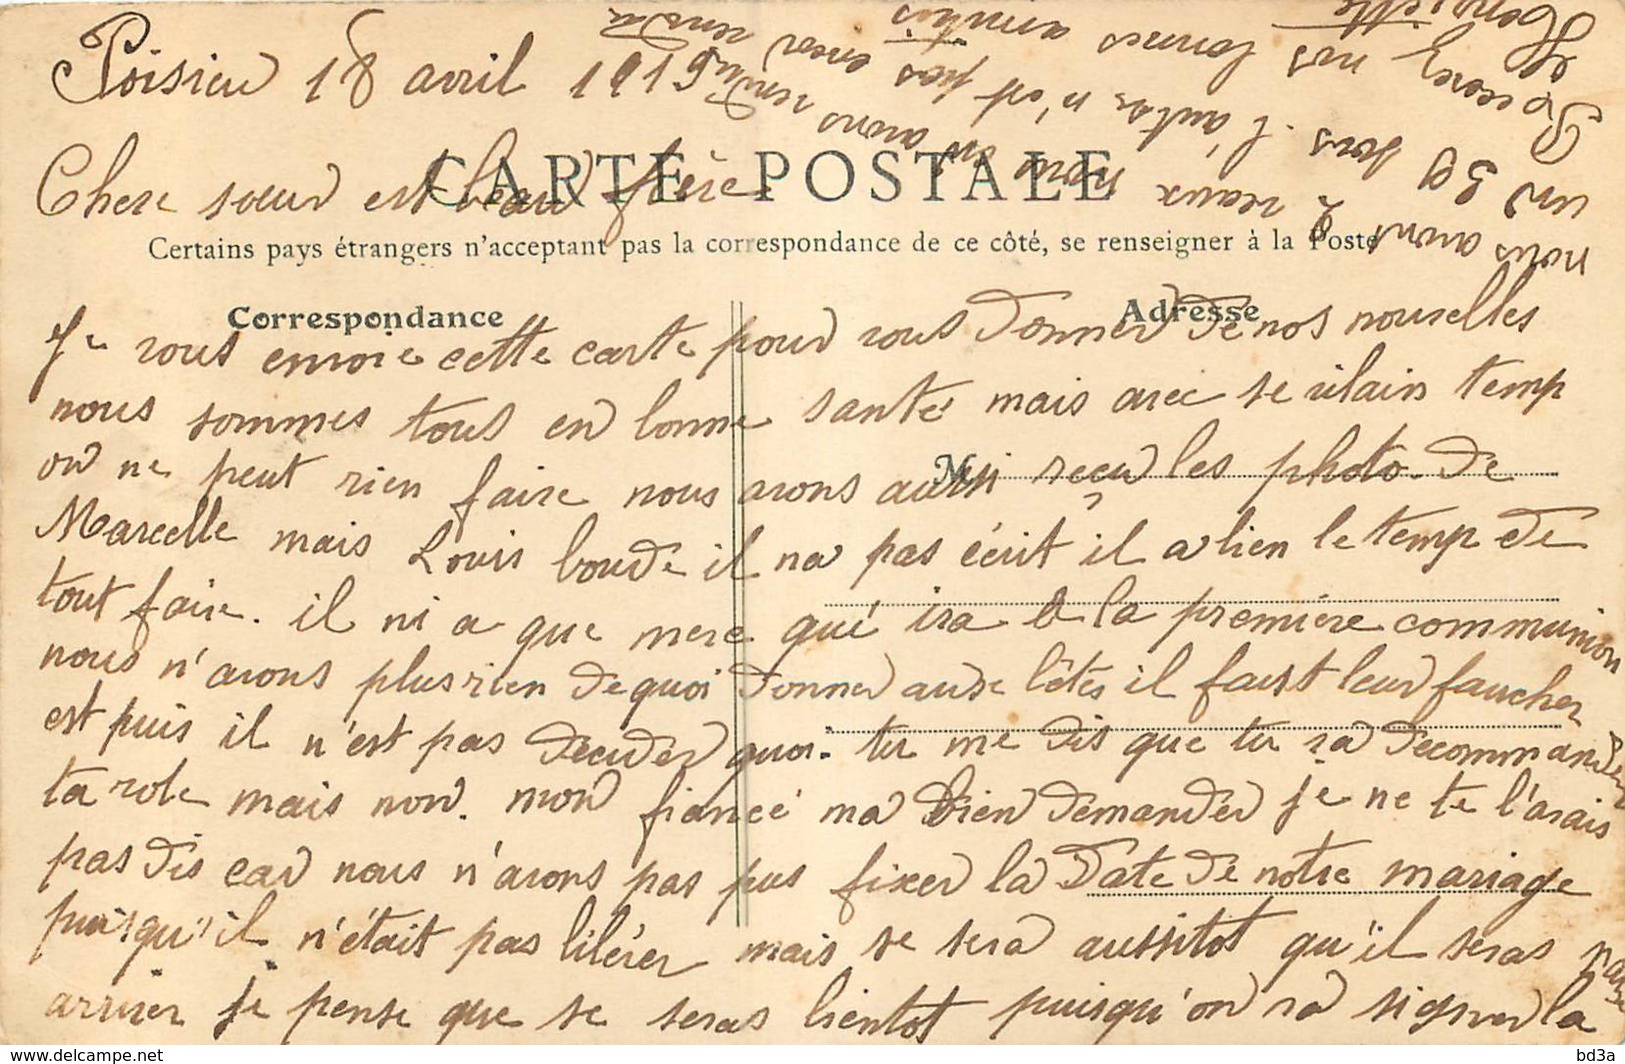 Poisieu 18 avril 1915
Chere sœur est beau frère
CARTE POSTALE
Certains pays étrangers n'acceptant pas la correspondance de ce côté, se renseigner à la Poste
Correspondance
Adresse
M
Je vous envoie cette carte pour vous donner de nos nouvelles
nous sommes tous en bonne santé mais avec se vilain temp
on ne peut rien faire nous avons aussi reçu les photo de
Marcelle mais Louis boude il na pas écrit il a bien le temp de
tout faire. il ni a que mere qui ira à la première communion
nous n'avons plus rien de quoi donner au de bêtes il faut leur faucher
est puis il n'est pas decider quoi. tu me dis que tu va decommander
ta robe mais non. mon fiancé ma bien demander je ne te l'avais
pas dis car nous n'avons pas pus fixer la date de notre mariage
puisqu'il n'était pas libérer mais se sera aussitot qu'il seras
arriver je pense que se seras bientot puisqu'on va signer la
nous avons 2 veaux nous en avons vendus
un 39 sous. l'autre n'est pas encor vendu
Recevez nos bonnes amitiés
Henriette
bd3a